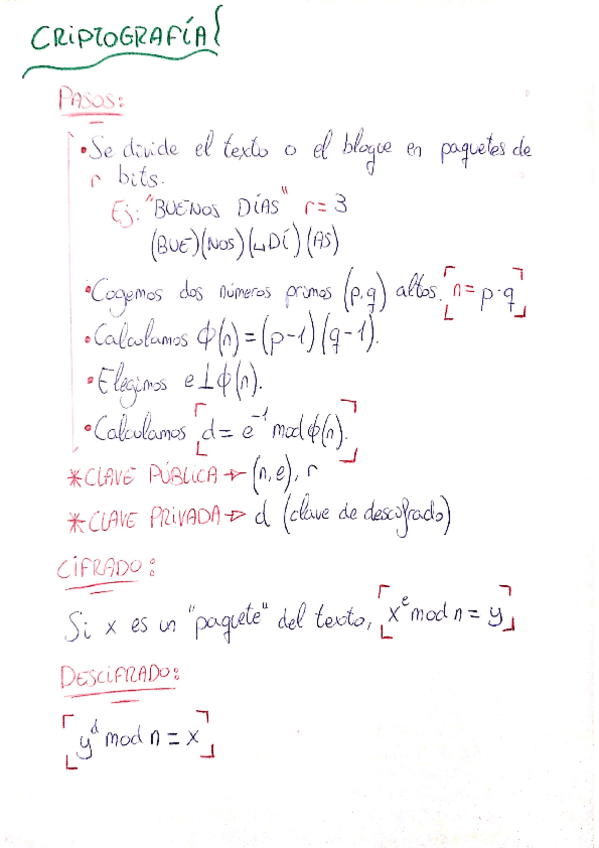 CRIPTOGRAFÍA
PASOS:
•Se divide el texto o el bloque en paquetes de
r bits.
Ej: "BUENOS DÍAS" r=3
(BUE)(NOS)(␣DÍ)(AS)
•Cogemos dos números primos (p,q) altos. n=p·q
•Calculamos ϕ(n)=(p-1)(q-1).
•Elegimos e⊥ϕ(n).
•Calculamos d= e⁻¹ mod ϕ(n).
*CLAVE PÚBLICA → (n,e), r
*CLAVE PRIVADA → d (clave de descifrado)
CIFRADO:
Si x es un "paquete" del texto, xᵉ mod n = y
DESCIFRADO:
yᵈ mod n = x